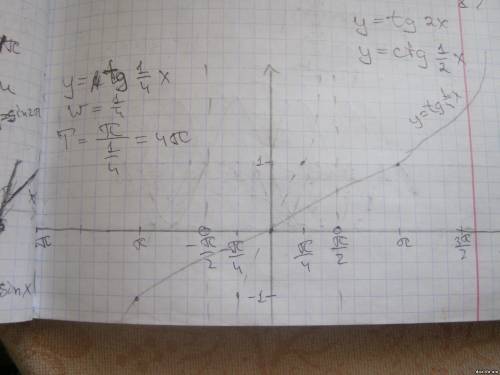 y = tg 2x
y = ctg 1/2 x
y = tg 1/4 x
w = 1/4
T = π / (1/4) = 4π
y = tg 1/4 x
1
π π -π/2 -π/4 π/4 π/2 π 3π/2
-1
sin x